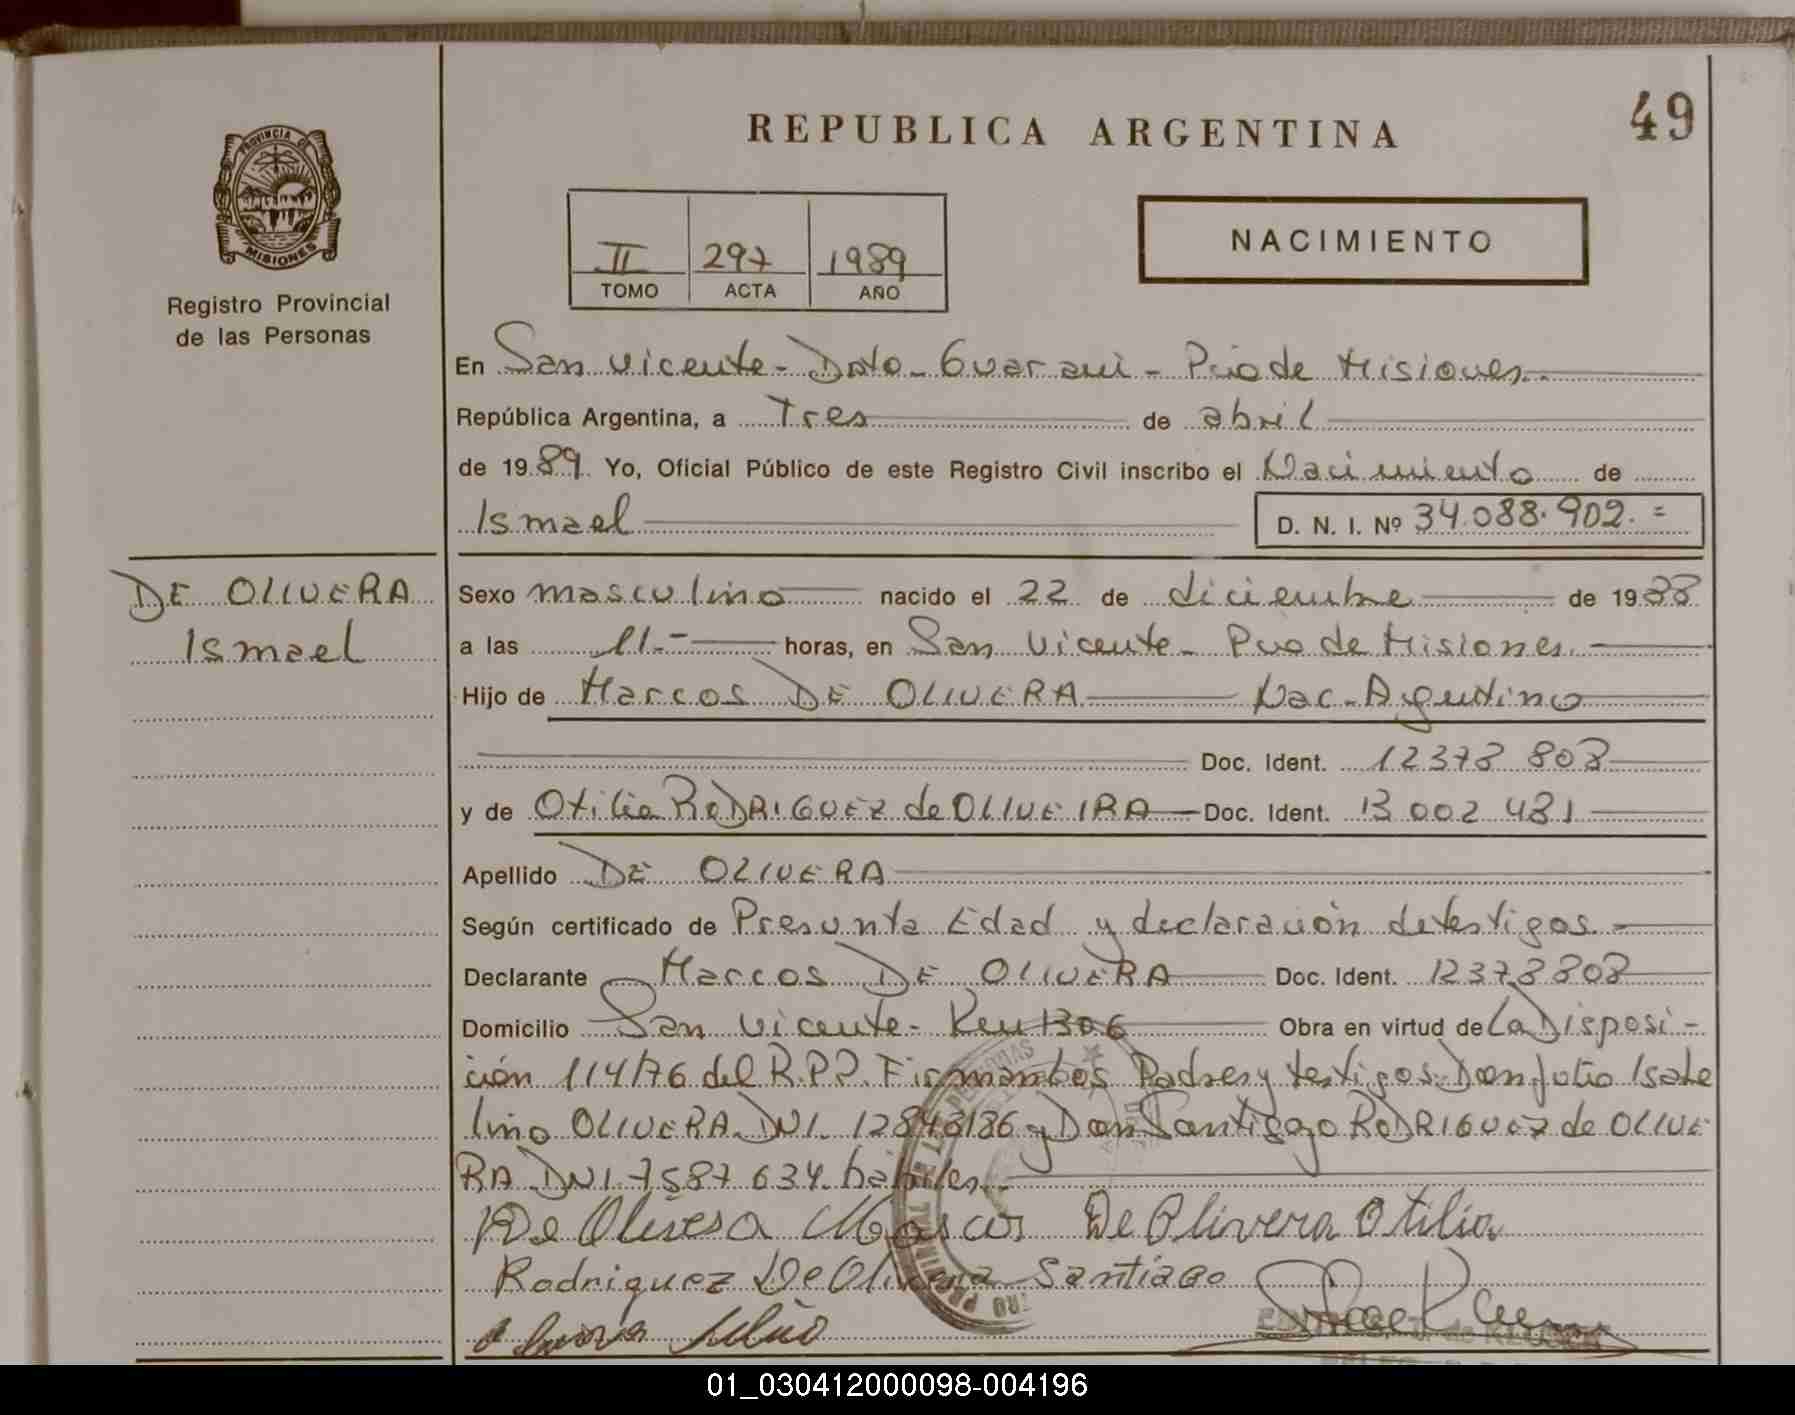 49
REPUBLICA ARGENTINA
PROVINCIA DE
MISIONES
Registro Provincial
de las Personas
II 297 1989
TOMO ACTA AÑO
NACIMIENTO
En San Vicente - Dpto - Guaraní - Pcia de Misiones.
República Argentina, a Tres de abril
de 1989 Yo, Oficial Público de este Registro Civil inscribo el Nacimiento de
Ismael D. N. I. Nº 34.088.902.=
DE OLIVERA
Ismael
Sexo masculino nacido el 22 de diciembre de 1988
a las 11.- horas, en San Vicente - Pcia de Misiones.
Hijo de Marcos DE OLIVERA Nac. Argentino
Doc. Ident. 12378 808
y de Otilia RODRIGUEZ de OLIVEIRA Doc. Ident. 13 002 481
Apellido DE OLIVERA
Según certificado de Presunta Edad y declaración de testigos.
Declarante Marcos DE OLIVERA Doc. Ident. 12378808
Domicilio San Vicente - Km 1306 Obra en virtud de La Disposi-
ción 114/76 del R.P.P. Firmantes Padres y testigos Don Julio Isabe
lino OLIVERA DNI. 12848186 y Don Santiago RODRIGUEZ de OLIVE
RA DNI 7587 634. hábiles.
De Olivera Marcos De Olivera Otilia
Rodriguez De Olivera Santiago
Julio
01_030412000098-004196